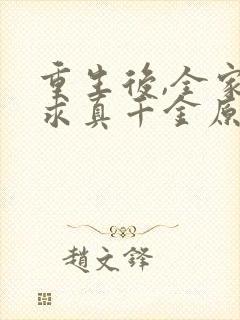 重生後,全家
求真千金原
趙文鋒